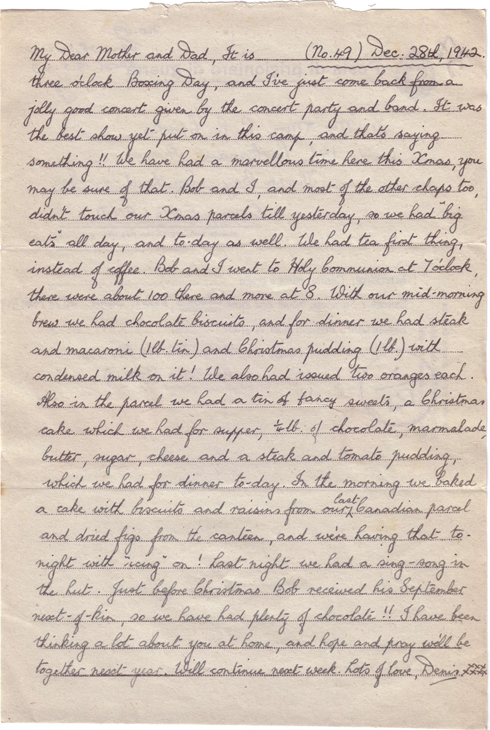 My Dear Mother and Dad, It is (No. 49) Dec. 28th, 1942.
three o'clock Boxing Day, and I've just come back from a
jolly good concert given by the concert party and band. It was
the best show yet put on in this camp, and thats saying
something!! We have had a marvellous time here this Xmas, you
may be sure of that. Bob and I, and most of the other chaps too,
didn't touch our Xmas parcels till yesterday, so we had "big
eats" all day, and to-day as well. We had tea first thing,
instead of coffee. Bob and I went to Holy Communion at 7 o'clock,
there were about 100 there and more at 8. With our mid-morning
brew we had chocolate biscuits, and for dinner we had steak
and macaroni (1lb. tin.) and Christmas pudding (1lb.) with
condensed milk on it! We also had issued two oranges each.
Also in the parcel we had a tin of fancy sweets, a Christmas
cake which we had for supper, ¼lb. of chocolate, marmalade,
butter, sugar, cheese and a steak and tomato pudding,
which we had for dinner to-day. In the morning we baked
a cake with biscuits and raisins from our last Canadian parcel
and dried figs from the canteen, and we're having that to-
night with "icing" on! Last night we had a sing-song in
the hut. Just before Christmas Bob received his September
next-of-kin, so we have had plenty of chocolate!! I have been
thinking a lot about you at home, and hope and pray we'll be
together next year. Will continue next week. Lots of love, Denis. xxxx